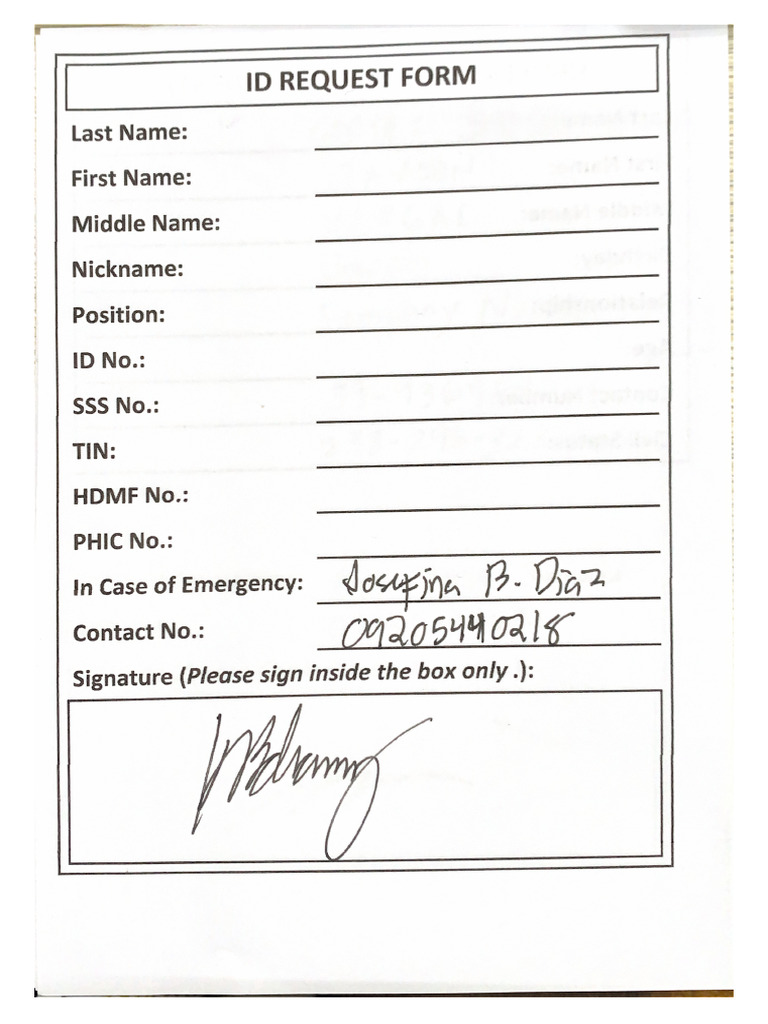 ID REQUEST FORM
Last Name:
First Name:
Middle Name:
Nickname:
Position:
ID No.:
SSS No.:
TIN:
HDMF No.:
PHIC No.:
In Case of Emergency: Josefina B. Diaz
Contact No.: 09205440218
Signature (Please sign inside the box only .):